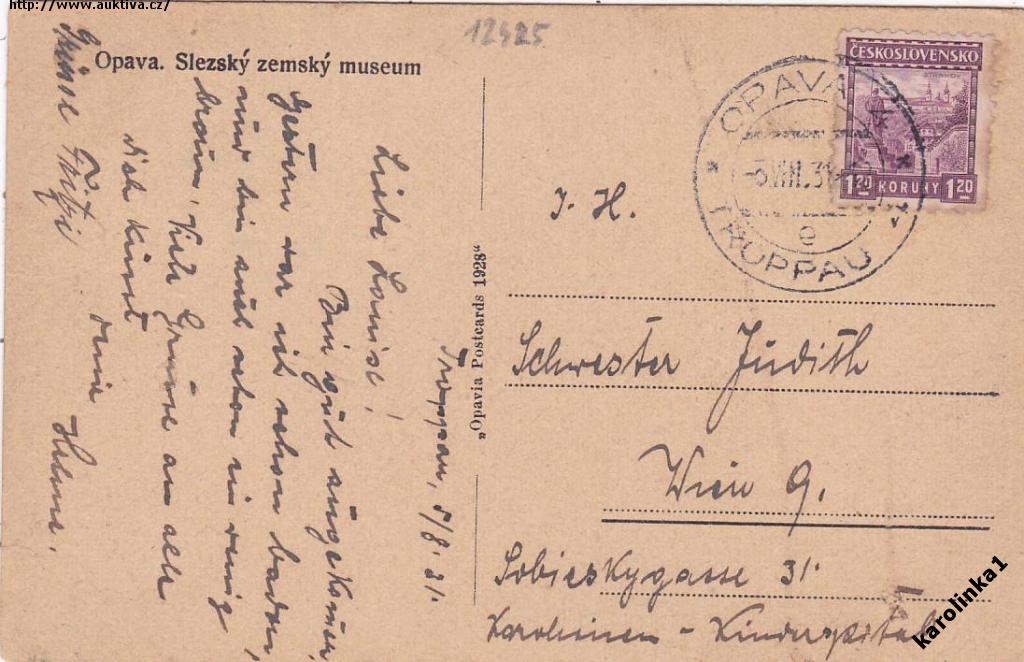 http://www.auktiva.cz/
12425
Opava. Slezský zemský museum
ČESKOSLOVENSKO
STRAHOV
1.20 KORUNY 1.20
OPAVA
e
TROPPAU
„Opavia Postcards 1928“
Troppau, 5/8.31.
Liebe Louise!
Bin gut angekommen.
Gestern war ich schon baden,
und bin auch schon ein wenig
braun. Viele Grüsse an alle
dich küsst
deine Helene.
Grüsse
J. H.
Schwester Judith
Wien 9.
Sobieskygasse 31.
Karolinen - Kinderspital
karolinka1